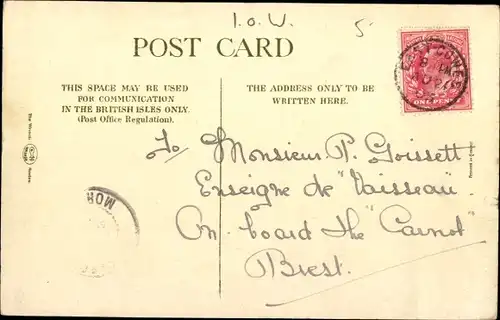 I.O.W. 5
POST CARD
THIS SPACE MAY BE USED
FOR COMMUNICATION
IN THE BRITISH ISLES ONLY.
(Post Office Regulation).
THE ADDRESS ONLY TO BE
WRITTEN HERE.
COWES
ONE PENNY
To Monsieur P. Goissett
Enseigne de "Vaisseau"
On board the "Carnot"
Brest.
MOR